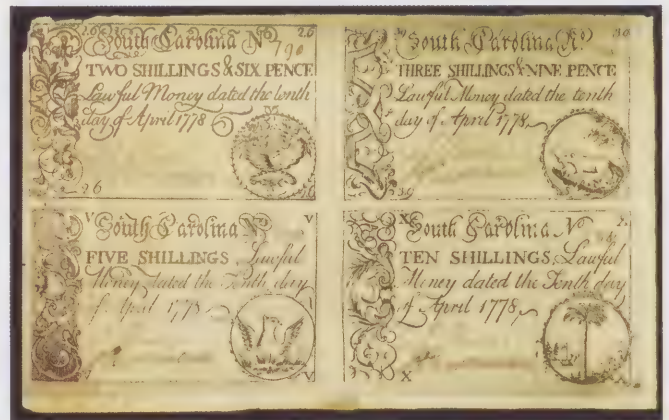 26 South Carolina Nº 790 26
TWO SHILLINGS & SIX PENCE
Lawful Money dated the tenth
day of April 1778
26
South Carolina Nº
THREE SHILLINGS & NINE PENCE
Lawful Money dated the tenth
day of April 1778
39
V South Carolina Nº V
FIVE SHILLINGS Lawful
Money dated the Tenth day
of April 1778
V V
X South Carolina Nº
TEN SHILLINGS, Lawful
Money dated the Tenth day
of April 1778,
X